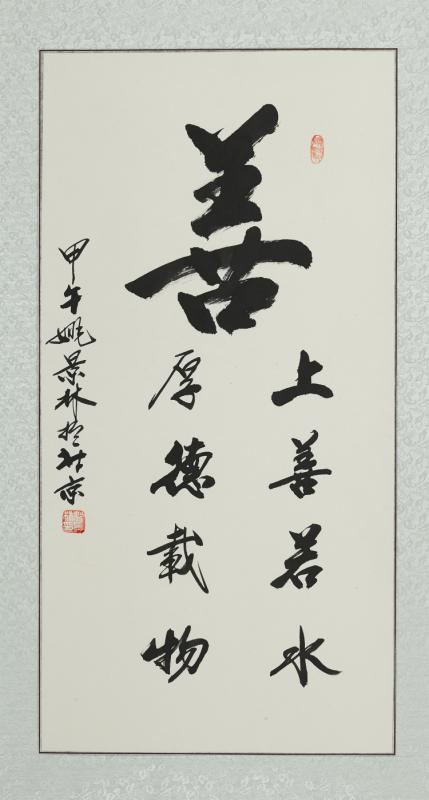 善
上善若水
厚德载物
甲午姚景林於北京